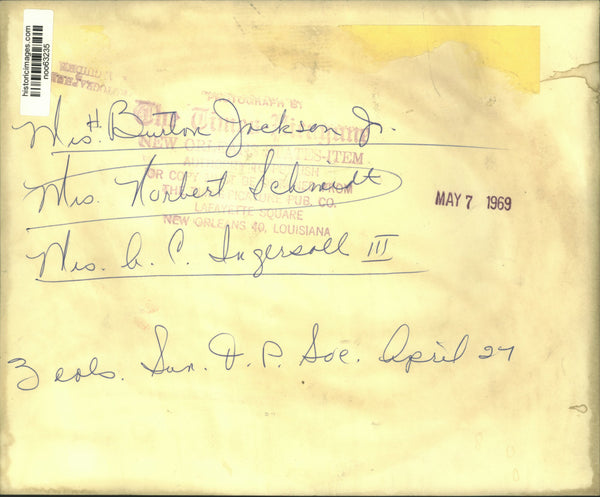 historicimages.com
noo63235
PHOTOGRAPH BY
The Times-Picayune
NEW ORLEANS STATES-ITEM
OR COPY
FROM
THE PUB. CO.
LAFAYETTE SQUARE
NEW ORLEANS 40, LOUISIANA
Mrs. H. Burton Jackson Jr.
Mrs. Norbert Schmidt
MAY 7 1969
Mrs. C. Ingersoll III
3 cols. Sun. T. P. Soc. April 27